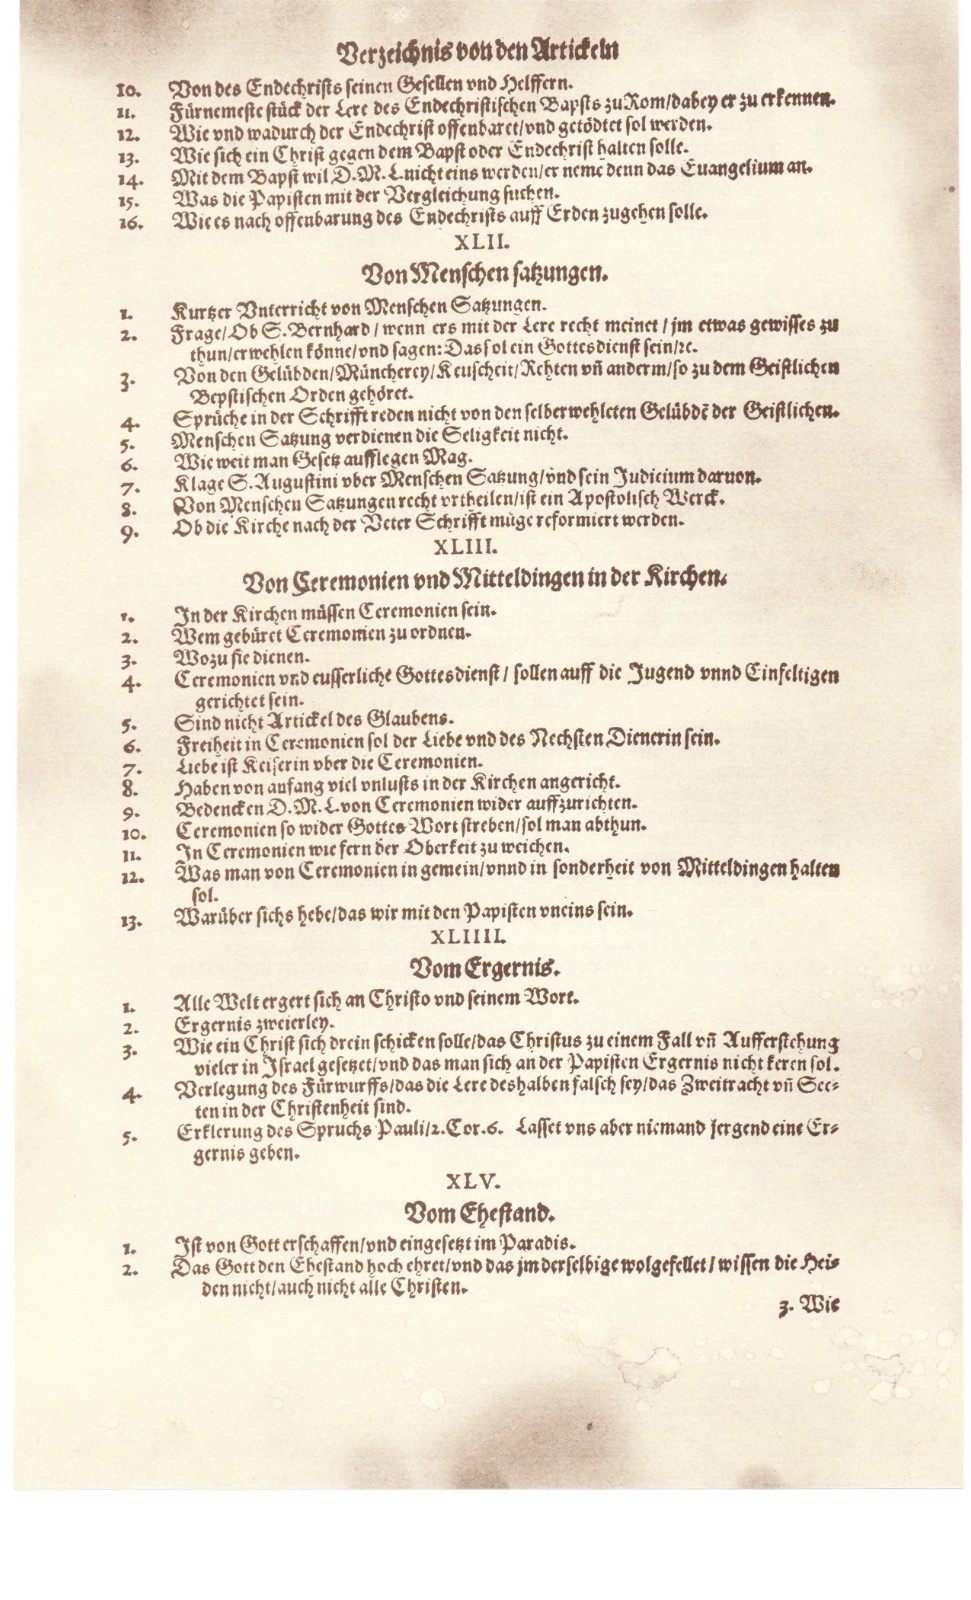 Verzeichnis von den Artickeln
10. Von des Endechrists seinen Gesellen vnd Helffern.
11. Fürnemeste stück der Lere des Endechristischen Bapsts zu Rom/dabey er zu erkennen.
12. Wie vnd wadurch der Endechrist offenbaret/vnd getödtet sol werden.
13. Wie sich ein Christ gegen dem Bapst oder Endechrist halten solle.
14. Mit dem Bapst wil D. M. L. nicht eins werden/er neme denn das Euangelium an.
15. Was die Papisten mit der Vergleichung suchen.
16. Wie es nach offenbarung des Endechrists auff Erden zugehen solle.
XLII.
Von Menschen satzungen.
1. Kurtzer Vnterricht von Menschen Satzungen.
2. Frage/Ob S. Bernhard/wenn ers mit der Lere recht meinet/jm etwas gewisses zu
thun/erwehlen könne/vnd sagen: Das sol ein Gottesdienst sein/ꝛc.
3. Von den Gelübden/Müncherey/Keuscheit/Rehten vn̄ anderm/so zu dem Geistlichen
Bepstischen Orden gehöret.
4. Sprüche in der Schrifft reden nicht von den selberwehleten Gelübdē der Geistlichen.
5. Menschen Satzung verdienen die Seligkeit nicht.
6. Wie weit man Gesetz aufflegen Mag.
7. Klage S. Augustini vber Menschen Satzung/vnd sein Judicium daruon.
8. Von Menschen Satzungen recht vrtheilen/ist ein Apostolisch Werck.
9. Ob die Kirche nach der Veter Schrifft müge reformiert werden.
XLIII.
Von Ceremonien vnd Mitteldingen in der Kirchen.
1. In der Kirchen müssen Ceremonien sein.
2. Wem gebüret Ceremonien zu ordnen.
3. Wozu sie dienen.
4. Ceremonien vnd eusserliche Gottesdienst/sollen auff die Jugend vnnd Einfeltigen
gerichtet sein.
5. Sind nicht Artickel des Glaubens.
6. Freiheit in Ceremonien sol der Liebe vnd des Nechsten Dienerin sein.
7. Liebe ist Keiserin vber die Ceremonien.
8. Haben von anfang viel vnlusts in der Kirchen angericht.
9. Bedencken D. M. L. von Ceremonien wider auffzurichten.
10. Ceremonien so wider Gottes Wort streben/sol man abthun.
11. In Ceremonien wie fern der Oberkeit zu weichen.
12. Was man von Ceremonien in gemein/vnnd in sonderheit von Mitteldingen halten
sol.
13. Warüber sichs hebe/das wir mit den Papisten vneins sein.
XLIIII.
Vom Ergernis.
1. Alle Welt ergert sich an Christo vnd seinem Wort.
2. Ergernis zweierley.
3. Wie ein Christ sich drein schicken solle/das Christus zu einem Fall vn̄ Aufferstehung
vieler in Israel gesetzet/vnd das man sich an der Papisten Ergernis nicht keren sol.
4. Verlegung des Fürwurffs/das die Lere deshalben falsch sey/das Zweitracht vn̄ Sec-
ten in der Christenheit sind.
5. Erklerung des Spruchs Pauli/2. Cor. 6. Lasset vns aber niemand jergend eine Er-
gernis geben.
XLV.
Vom Ehestand.
1. Ist von Gott erschaffen/vnd eingesetzt im Paradis.
2. Das Gott den Ehestand hoch ehret/vnd das jm derselbige wolgefellet/wissen die Hei-
den nicht/auch nicht alle Christen.
3. Wie